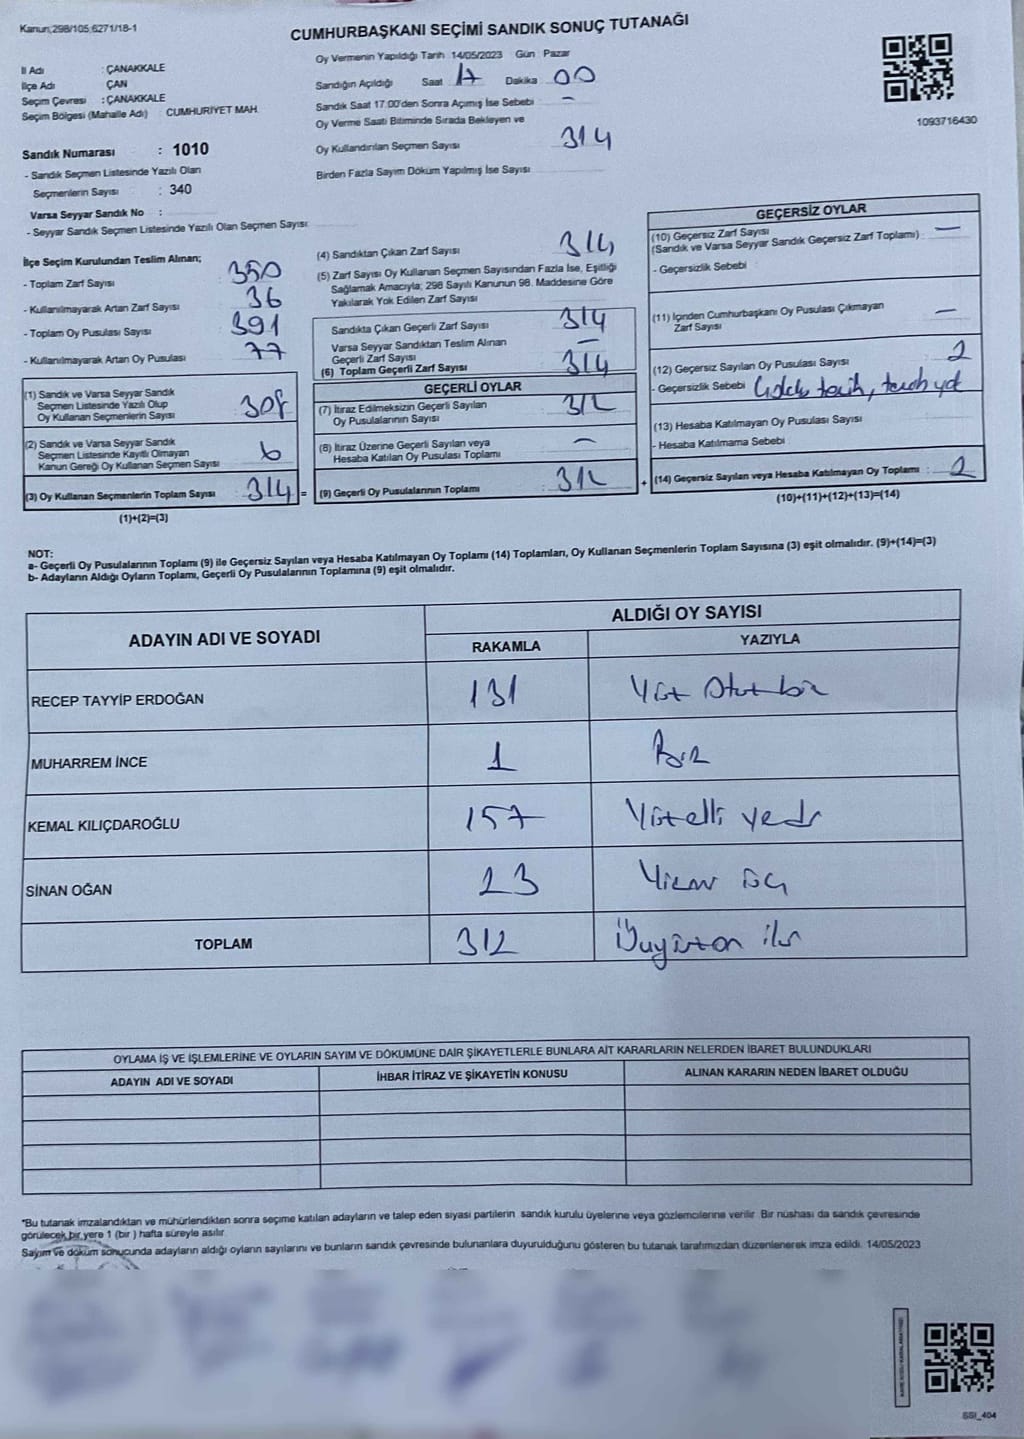 Kanun;298/105,6271/18-1
CUMHURBAŞKANI SEÇİMİ SANDIK SONUÇ TUTANAĞI
İl Adı : ÇANAKKALE
İlçe Adı ÇAN
Seçim Çevresi : ÇANAKKALE
Seçim Bölgesi (Mahalle Adı) : CUMHURİYET MAH.
Sandık Numarası : 1010
- Sandık Seçmen Listesinde Yazılı Olan
Seçmenlerin Sayısı : 340
Varsa Seyyar Sandık No :
- Seyyar Sandık Seçmen Listesinde Yazılı Olan Seçmen Sayısı:
Oy Vermenin Yapıldığı Tarih 14/05/2023 Gün Pazar
Sandığın Açıldığı Saat 17 Dakika 00
Sandık Saat 17:00'den Sonra Açımış İse Sebebi -
Oy Verme Saati Bitiminde Sırada Bekleyen ve
Oy Kullandırılan Seçmen Sayısı 314
Birden Fazla Sayım Döküm Yapılmış İse Sayısı
1093716430
İlçe Seçim Kurulundan Teslim Alınan;
- Toplam Zarf Sayısı 350
- Kullanılmayarak Artan Zarf Sayısı 36
- Toplam Oy Pusulası Sayısı 391
- Kullanılmayarak Artan Oy Pusulası 77
(1) Sandık ve Varsa Seyyar Sandık
Seçmen Listesinde Yazılı Olup
Oy Kullanan Seçmenlerin Sayısı 308
(2) Sandık ve Varsa Seyyar Sandık
Seçmen Listesinde Kayıtlı Olmayan
Kanun Gereği Oy Kullanan Seçmen Sayısı 6
(3) Oy Kullanan Seçmenlerin Toplam Sayısı 314 =
(1)+(2)=(3)
(4) Sandıktan Çıkan Zarf Sayısı 314
(5) Zarf Sayısı Oy Kullanan Seçmen Sayısından Fazla İse, Eşitliği
Sağlamak Amacıyla; 298 Sayılı Kanunun 98. Maddesine Göre
Yakılarak Yok Edilen Zarf Sayısı
Sandıkta Çıkan Geçerli Zarf Sayısı 314
Varsa Seyyar Sandıktan Teslim Alınan
Geçerli Zarf Sayısı -
(6) Toplam Geçerli Zarf Sayısı 314
GEÇERLİ OYLAR
(7) İtiraz Edilmeksizin Geçerli Sayılan
Oy Pusulalarının Sayısı 312
(8) İtiraz Üzerine Geçerli Sayılan veya
Hesaba Katılan Oy Pusulası Toplamı -
(9) Geçerli Oy Pusulalarının Toplamı 312 +
GEÇERSİZ OYLAR
(10) Geçersiz Zarf Sayısı
(Sandık ve Varsa Seyyar Sandık Geçersiz Zarf Toplamı) : -
- Geçersizlik Sebebi :
(11) İçinden Cumhurbaşkanı Oy Pusulası Çıkmayan
Zarf Sayısı -
(12) Geçersiz Sayılan Oy Pusulası Sayısı 2
- Geçersizlik Sebebi
(13) Hesaba Katılmayan Oy Pusulası Sayısı
- Hesaba Katılmama Sebebi
(14) Geçersiz Sayılan veya Hesaba Katılmayan Oy Toplamı : 2
(10)+(11)+(12)+(13)=(14)
NOT:
a- Geçerli Oy Pusulalarının Toplamı (9) ile Geçersiz Sayılan veya Hesaba Katılmayan Oy Toplamı (14) Toplamları, Oy Kullanan Seçmenlerin Toplam Sayısına (3) eşit olmalıdır. (9)+(14)=(3)
b- Adayların Aldığı Oyların Toplamı, Geçerli Oy Pusulalarının Toplamına (9) eşit olmalıdır.
ADAYIN ADI VE SOYADI
ALDIĞI OY SAYISI
RAKAMLA YAZIYLA
RECEP TAYYİP ERDOĞAN 131 Yüz Otuz bir
MUHARREM İNCE 1 Bir
KEMAL KILIÇDAROĞLU 157 Yüzelli yedi
SİNAN OĞAN 23 Yirmi üç
TOPLAM 312 Üçyüzon iki
OYLAMA İŞ VE İŞLEMLERİNE VE OYLARIN SAYIM VE DÖKÜMÜNE DAİR ŞİKAYETLERLE BUNLARA AİT KARARLARIN NELERDEN İBARET BULUNDUKLARI
ADAYIN ADI VE SOYADI İHBAR İTİRAZ VE ŞİKAYETİN KONUSU ALINAN KARARIN NEDEN İBARET OLDUĞU
*Bu tutanak imzalandıktan ve mühürlendikten sonra seçime katılan adayların ve talep eden siyasi partilerin sandık kurulu üyelerine veya gözlemcilerine verilir. Bir nüshası da sandık çevresinde
görülecek bir yere 1 (bir ) hafta süreyle asılır.
Sayım ve döküm sonucunda adayların aldığı oyların sayılarını ve bunların sandık çevresinde bulunanlara duyurulduğunu gösteren bu tutanak tarafımızdan düzenlenerek imza edildi. 14/05/2023
SSI_404